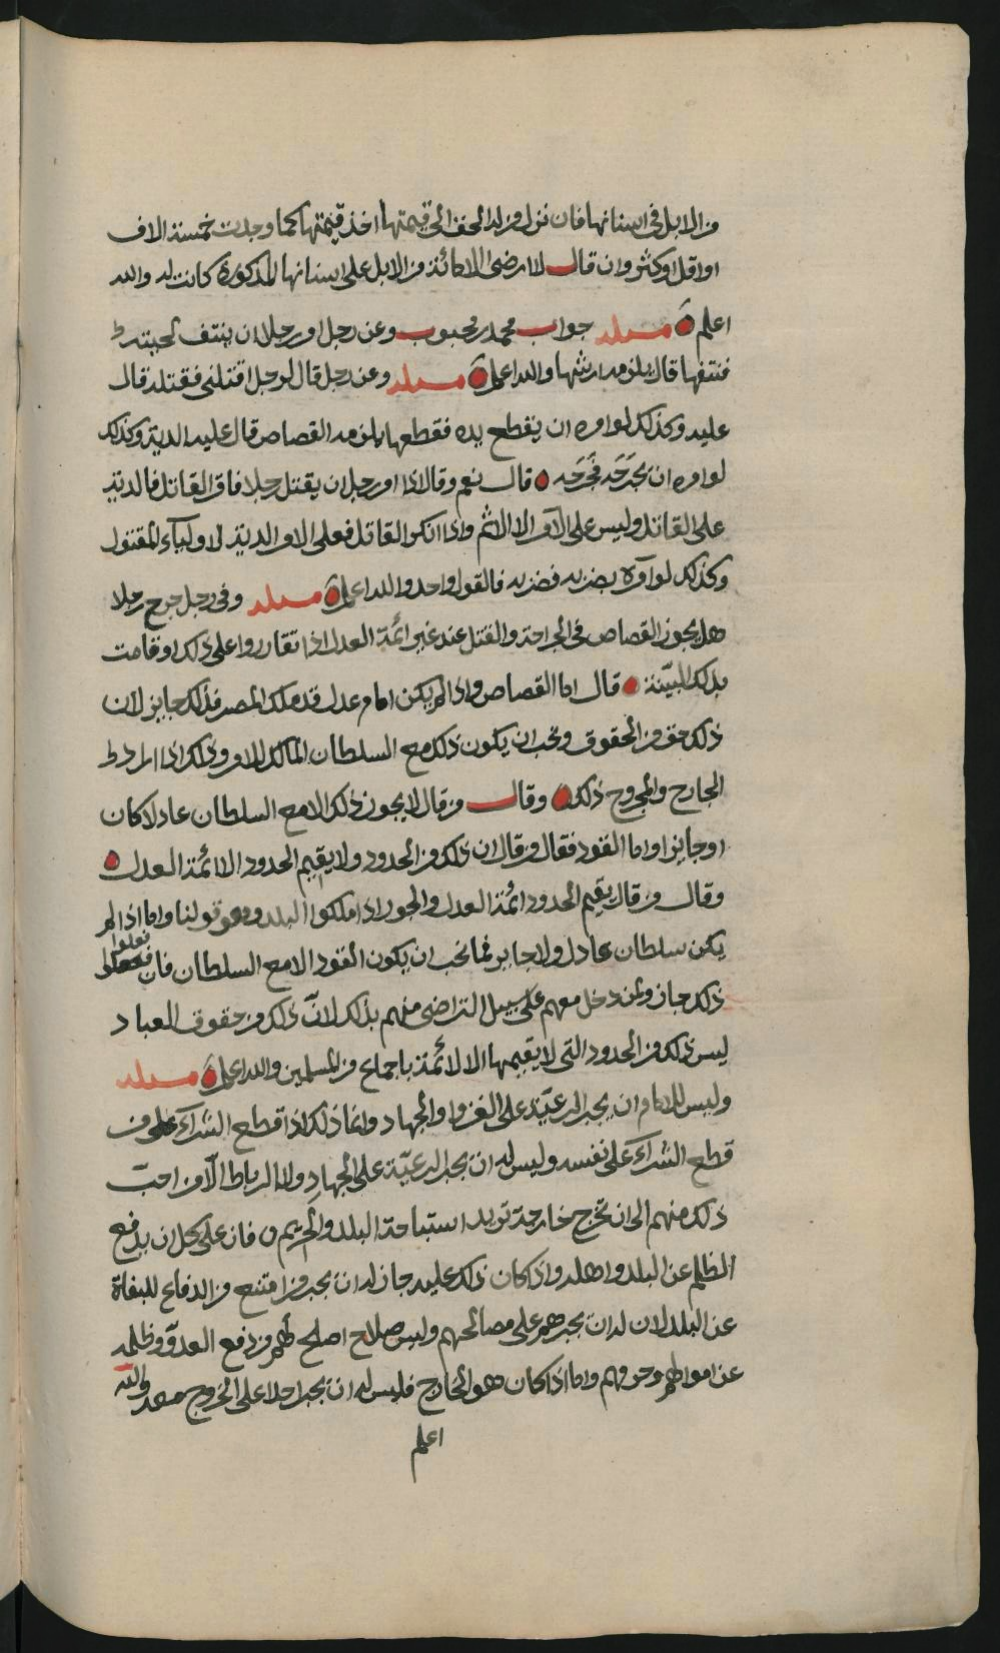 من الابل في اسنانها فان نزل من له الحق الى قيمتها اخذ قيمتها كما وجدت خمسة الاف
او اقل او كثر وان قال لا ارضى الا مائة من الابل على اسنانها المذكورة كانت له والله
اعلم مسئلة جواب محمد بن محبوب وعن رجل امر رجلا ان ينتف لحيته
فنتفها قال يلزمه ارشها والله اعلم مسئلة وعن رجل قال لرجل اقتلني فقتله قال
عليه وكذلك لو امره ان يقطع يده فقطعها يلزمه القصاص قال عليه الدية وكذلك
لو امره ان يجرحه فجرحه قال نعم وقال اذا امر رجل ان يقتل رجلا فاقر القاتل فالدية
على القاتل وليس على الآمر الا الاثم واذا انكر القاتل فعلى الامر الدية لاولياء المقتول
وكذلك لو امره بضربه فضربه فالقول واحد والله اعلم مسئلة وفي رجل جرح رجلا
هل يجوز القصاص في الجراحة والقتل عند غير ائمة العدل اذا تقارروا على ذلك او قامت
بذلك البينة قال اما القصاص واذا لم يكن امام عدل قد ملك المصر فذلك جايز لان
ذلك حق من الحقوق ونحب ان يكون ذلك مع السلطان المالك للامر وذلك اذا اراد
الجارح والمجروح ذلك وقال من قال لا يجوز ذلك الا مع السلطان عادلا كان
او جايزا واما القود فقال من قال ان ذلك من الحدود ولا يقيم الحدود الا ائمة العدل
وقال من قال يقيم الحدود ائمة العدل والجور اذا ملكوا البلد وهو قولنا واما اذا لم
يكن سلطان عادل ولا جاير فما نحب ان يكون القود الا مع السلطان فان فعلوا
ذلك جاز ولمن دخل معهم على سبيل التراضي منهم بذلك لان ذلك من حقوق العباد
ليس ذلك من الحدود التي لا يقيمها الا الائمة باجماع من المسلمين والله اعلم مسئلة
وليس للامام ان يجبر الرعية على الغزو والجهاد وانما ذلك اذا قطع الشراء على من
قطع الشراء على نفسه وليس له ان يجبر الرعية على الجهاد ولا الرباط الا من احب
ذلك منهم الى ان تخرج خارجة تريد استباحة البلد والحريم فان على كل ان يدفع
الظلم عن البلد واهله واذا كان ذلك عليه جاز له ان يجبر من امتنع من الدفاع للبغاة
عن البلد لان له ان يجبرهم على مصالحهم وليس صلاح اصلح لهم من دفع العدو وظلمه
عن اموالهم وحرمهم واما اذا كان هو الخارج فليس له ان يجبر احدا على الخروج معه والله
اعلم